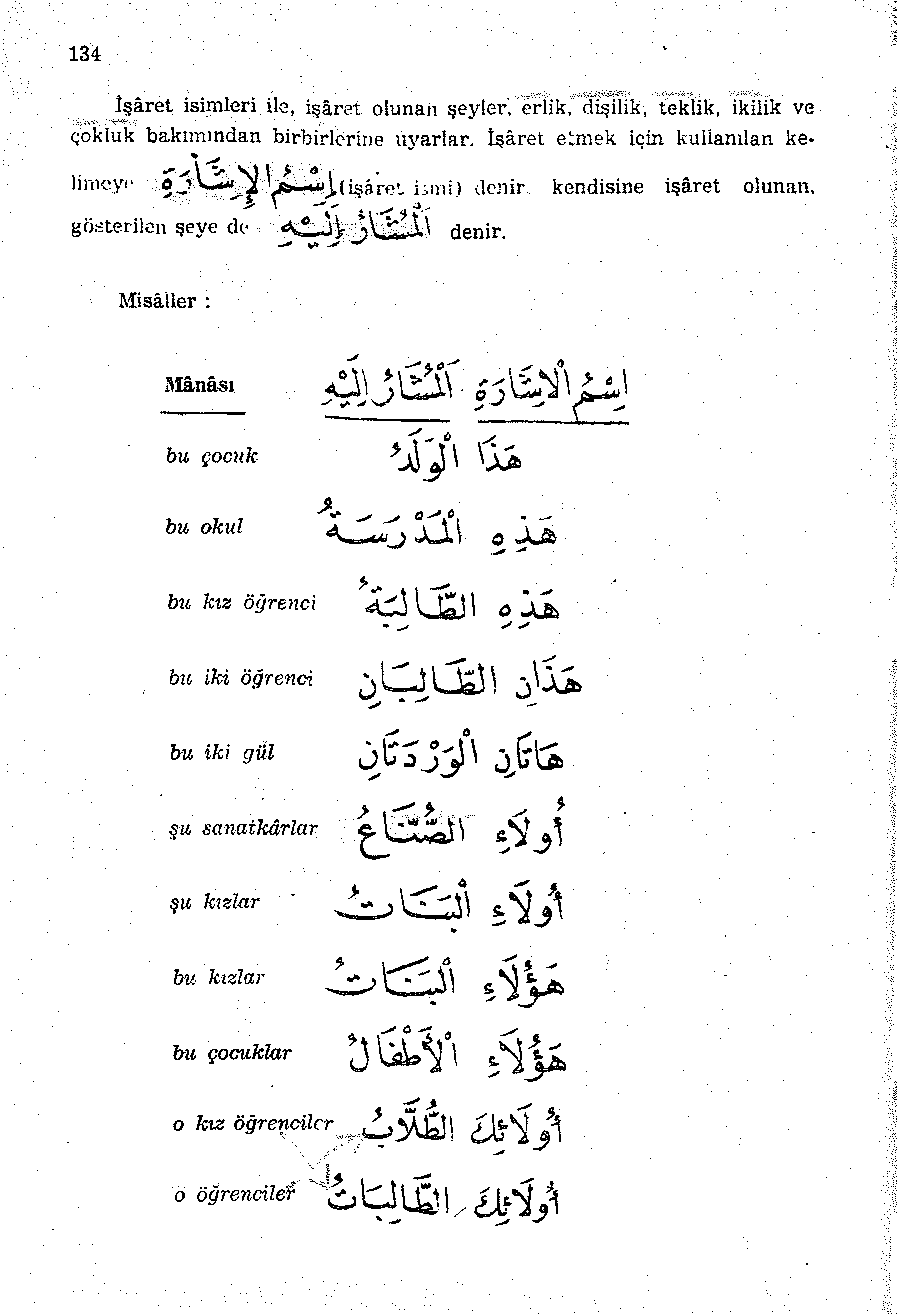 134
İşâret isimleri ile, işâret olunan şeyler, erlik, dişilik, teklik, ikilik ve
çokluk bakımından birbirlerine uyarlar. İşâret etmek için kullanılan ke-
limeye اِسْمُ الْإِشَارَةِ (işâret ismi) denir. kendisine işâret olunan,
gösterilen şeye de اَلْمُشَارُ إِلَيْهِ denir.
Misâller :
Mânâsı اِسْمُ الْاِشَارَةِ اَلْمُشَارُ اِلَيْهِ
bu çocuk هَذَا الْوَلَدُ
bu okul هَذِهِ الْمَدْرَسَةُ
bu kız öğrenci هَذِهِ الطَّالِبَةُ
bu iki öğrenci هَذَانِ الطَّالِبَانِ
bu iki gül هَاتَانِ الْوَرْدَتَانِ
şu sanatkârlar أُولَاءِ الصُّنَّاعُ
şu kızlar أُولَاءِ الْبَنَاتُ
bu kızlar هَؤُلَاءِ الْبَنَاتُ
bu çocuklar هَؤُلَاءِ الْأَطْفَالُ
o kız öğrenciler أُولَائِكَ الطُّلَّابُ
o öğrenciler أُولَائِكَ الطَّالِبَاتُ